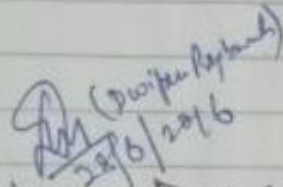 (Dwipen Rajbanshi)
28/6/2016